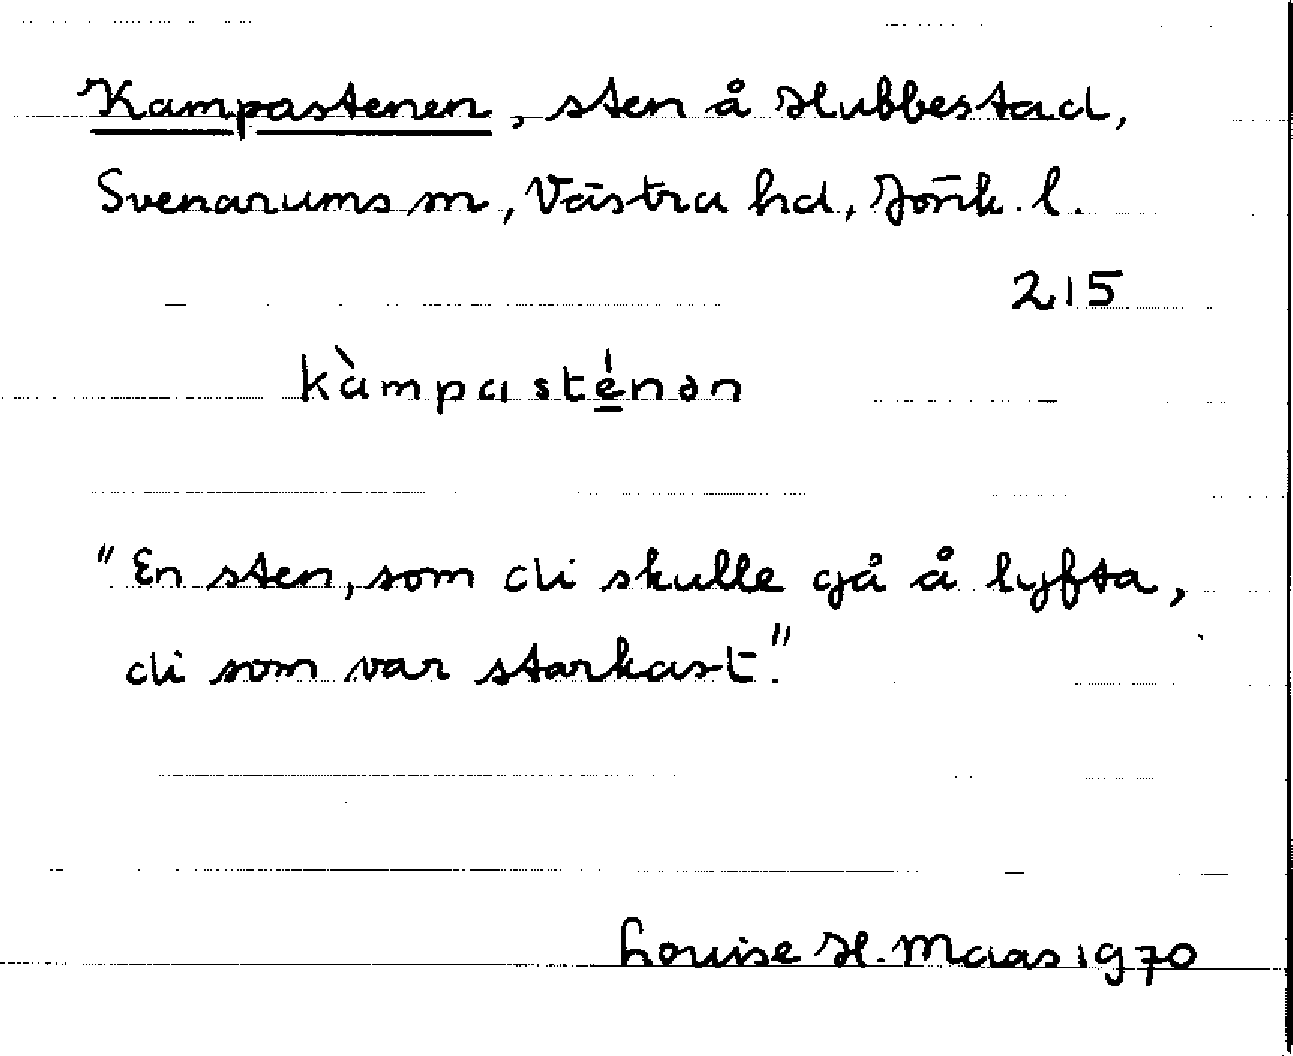 Kampastenen, sten å Hubbestad,
Svenarums sn, Västra hd, Jönk. l.
215
kàmpasténən
"En sten, som di skulle gå å lyfta,
di som var starkast."
Louise H. Maas 1970